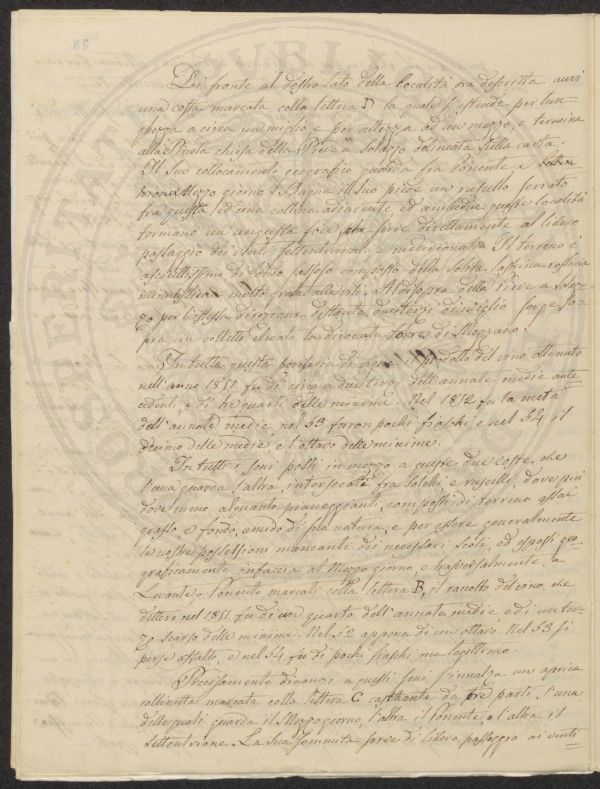 38
Di fronte al destro lato della località ora descritta avvi
una costa marcata colla lettera D la quale si stende per lun-
ghezza a circa un miglio, e per altezza ad un mezzo, e termina
alla Piccola chiesa della Pieve a Solazzo delineata sulla carta.
Il suo collocamento geografico guarda fra Ponente e
Mezzo giorno. Bagna il suo piede un ruscello serrato
fra questa ed una collina adiacente, ed ambedue queste località
formano un angusta foce, che serve direttamente al libero
passaggio dei venti settentrionali e meridionali. Il terreno è
asciuttissimo di corno sassoso composto della solita
minutissima molto grata alle viti. Al disopra della Pieve a Solaz-
zo per l'istessa direzione distante due terzi di miglio sorge so-
pra un colletto elevato la diroccata torre di Mozzano.
In tutta questa periferia di vigne il prodotto del vino ottenuto
nell'anno 1851 fu di circa a due terzi dell'annate medie ante-
cedenti, e di tre quarti delle minime. Nel 1852 fu la metà
dell'annate medie, nel 53 furon pochi fiaschi, e nel 54 il
decimo delle medie, e l'ottavo delle minime.
In tutti i seni posti in mezzo a queste due coste, che
l'una guarda l'altra, intersecate fra solchi, e ruscelli, dove più
dove meno alquanto pianeggianti, composti di terreno assai
grasso, e fondo, umido di sua natura, e per essere generalmente
le nostre possessioni mancanti dei necessari scoli, ed esposti geo-
graficamente in faccia al Mezzo giorno, e trasversalmente a
Levante, e Ponente marcati colla lettera B, il raccolto del vino, che
dettero nel 1851 fu di un quarto dell'annate medie e di un ter-
zo scarso delle minime. Nel 52 appena di un ottavo. Nel 53 si
perse affatto, e nel 54 fu di pochi fiaschi ma legittimo.
Precisamente dinanzi a questi seni s'innalza un aprica
collinetta marcata colla lettera C da tre parti, l'una
delle quali guarda il Mezzogiorno, l'altra il Ponente, e l'altra il
Settentrione. La sua sommità serve di libero passaggio ai venti